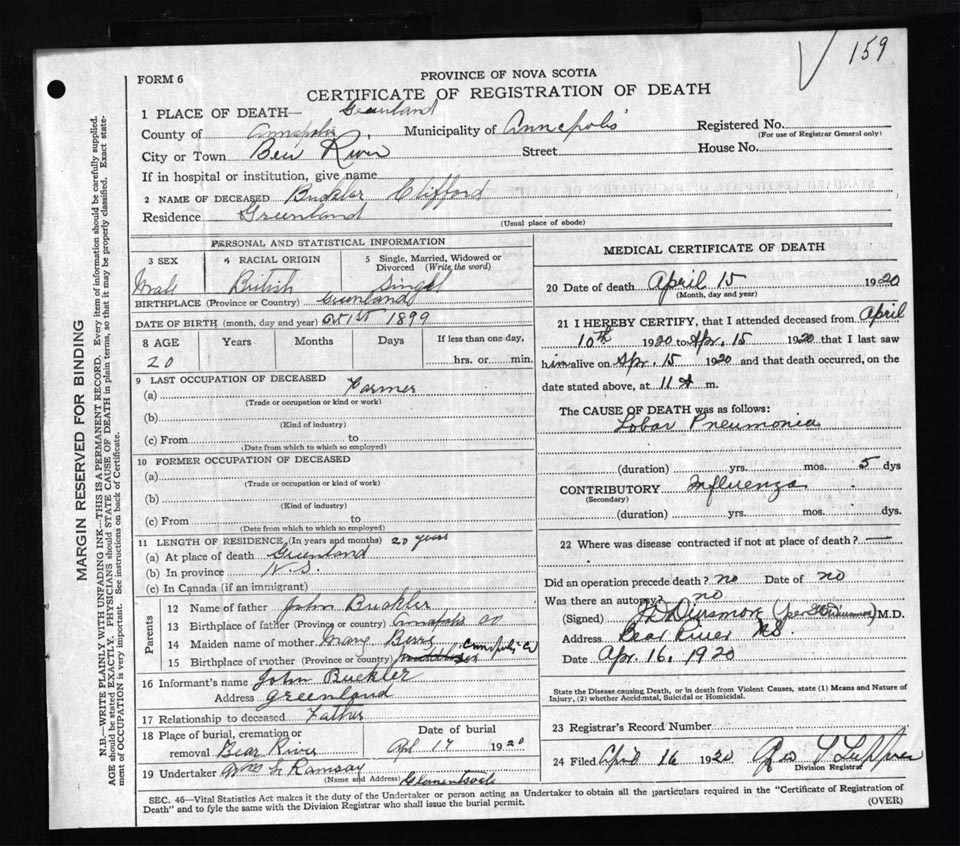 159
FORM 6
PROVINCE OF NOVA SCOTIA
CERTIFICATE OF REGISTRATION OF DEATH
1 PLACE OF DEATH— Greenland
County of Annapolis Municipality of Annapolis Registered No.
(For use of Registrar General only)
City or Town Bear River Street House No.
If in hospital or institution, give name
2 NAME OF DECEASED Buckler Clifford
Residence Greenland
(Usual place of abode)
PERSONAL AND STATISTICAL INFORMATION
3 SEX 4 RACIAL ORIGIN 5 Single, Married, Widowed or Divorced (Write the word)
Male British Single
BIRTHPLACE (Province or Country) Greenland
DATE OF BIRTH (month, day and year) 1899
8 AGE Years Months Days If less than one day,
20 hrs. or min.
9 LAST OCCUPATION OF DECEASED
(a) Farmer
(Trade or occupation or kind or work)
(b)
(Kind of industry)
(c) From to
(Date from which to which so employed)
10 FORMER OCCUPATION OF DECEASED
(a)
(Trade or occupation or kind of work)
(b)
(Kind of industry)
(c) From to
(Date from which to which so employed)
11 LENGTH OF RESIDENCE, (In years and months) 20 years
(a) At place of death Greenland
(b) In province N.S.
(c) In Canada (if an immigrant)
Parents
12 Name of father John Buckler
13 Birthplace of father (Province or country) Annapolis Co
14 Maiden name of mother Mary
15 Birthplace of mother (Province or country) Annapolis Co
16 Informant's name John Buckler
Address Greenland
17 Relationship to deceased Father
18 Place of burial, cremation or removal Bear River Date of burial Apl 17 1920
19 Undertaker Wm G. Ramsay Clementsvale
(Name and Address)
MEDICAL CERTIFICATE OF DEATH
20 Date of death April 15 1920
(Month, day and year)
21 I HEREBY CERTIFY, that I attended deceased from April
10th 1920 to Apr. 15 1920 that I last saw
him alive on Apr. 15 1920 and that death occurred, on the
date stated above, at 11 m.
The CAUSE OF DEATH was as follows:
Lobar Pneumonia
(duration) yrs. mos. 5 dys
CONTRIBUTORY Influenza
(Secondary)
(duration) yrs. mos. dys.
22 Where was disease contracted if not at place of death? —
Did an operation precede death? no Date of no
Was there an autopsy? no
(Signed) Dinsmore M.D.
Address Bear River N.S.
Date Apr. 16, 1920
State the Disease causing Death, or in death from Violent Causes, state (1) Means and Nature of
Injury, (2) whether Accidental, Suicidal or Homicidal.
23 Registrar's Record Number
24 Filed April 16 1920
Division Registrar
SEC. 46—Vital Statistics Act makes it the duty of the Undertaker or person acting as Undertaker to obtain all the particulars required in the "Certificate of Registration of
Death" and to fyle the same with the Division Registrar who shall issue the burial permit.
(OVER)
MARGIN RESERVED FOR BINDING
N.B.—WRITE PLAINLY WITH UNFADING INK—THIS IS A PERMANENT RECORD. Every item of information should be carefully supplied.
AGE should be stated EXACTLY. PHYSICIANS should STATE CAUSE OF DEATH in plain terms, so that it may be properly classified. Exact state-
ment of OCCUPATION is very important. See instructions on back of Certificate.